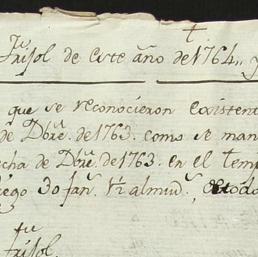 fu
frisol de este año de 1764,, y
que se reconocieron existen
de Dbre. de 1763. como se man
cha de Dbre. de 1763. en el temp
ego 30 fan. 1/2 almud.
fu
frisol.